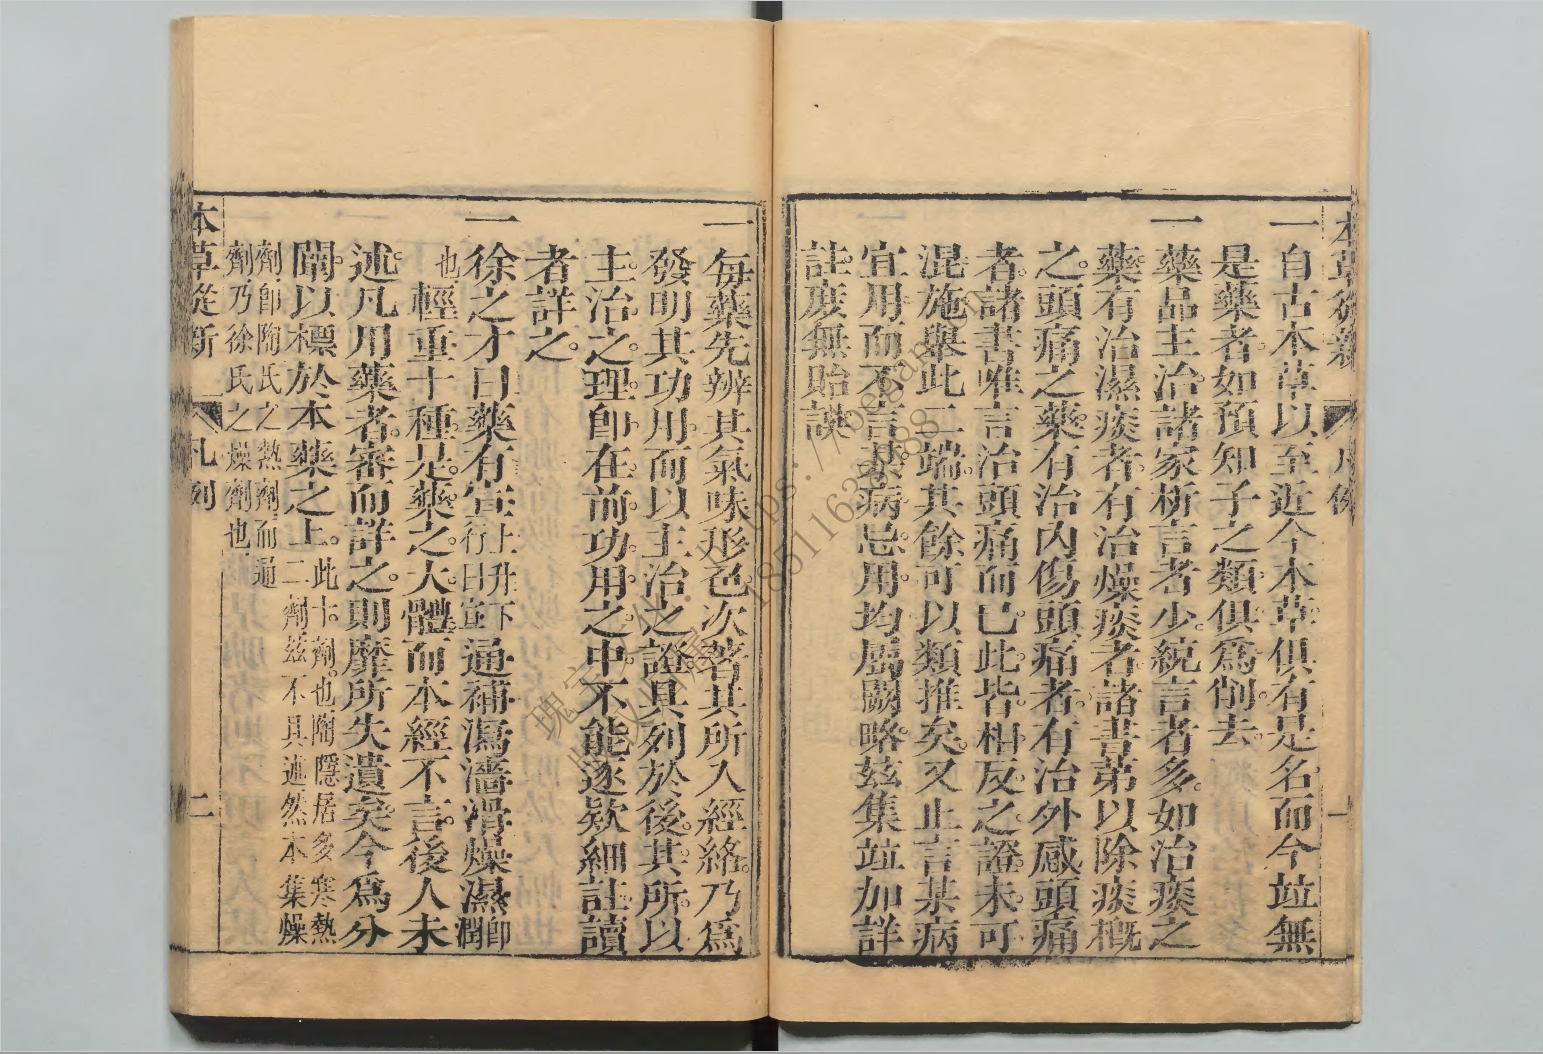 本草從新
凡例
一
一自古本草以至近今本草俱有是名而今竝無
是藥者如預知子之類俱爲削去
一藥品主治諸家析言者少統言者多如治痰之
藥有治濕痰者有治燥痰者諸書第以除痰槪
之頭痛之藥有治內傷頭痛者有治外感頭痛
者諸書唯言治頭痛而已此皆相反之證未可
混施舉此二端其餘可以類推矣又止言某病
宜用而不言某病忌用均屬闕略茲集竝加詳
註庶無貽誤
一每藥先辨其氣味形色次著其所入經絡乃爲
發明其功用而以主治之證具列於後其所以
主治之理卽在前功用之中不能逐欵細註讀
者詳之
一徐之才曰藥有宣上升下行曰宣通補瀉濇滑燥濕卽潤
也輕重十種是藥之大體而本經不言後人未
述凡用藥者審而詳之則靡所失遺矣今爲分
闡以標於本藥之上此十劑也陶隱居多寒熱
二劑茲不具述然本集燥
劑卽陶氏之熱劑而通
劑乃徐氏之燥劑也
本草從新
凡例
二